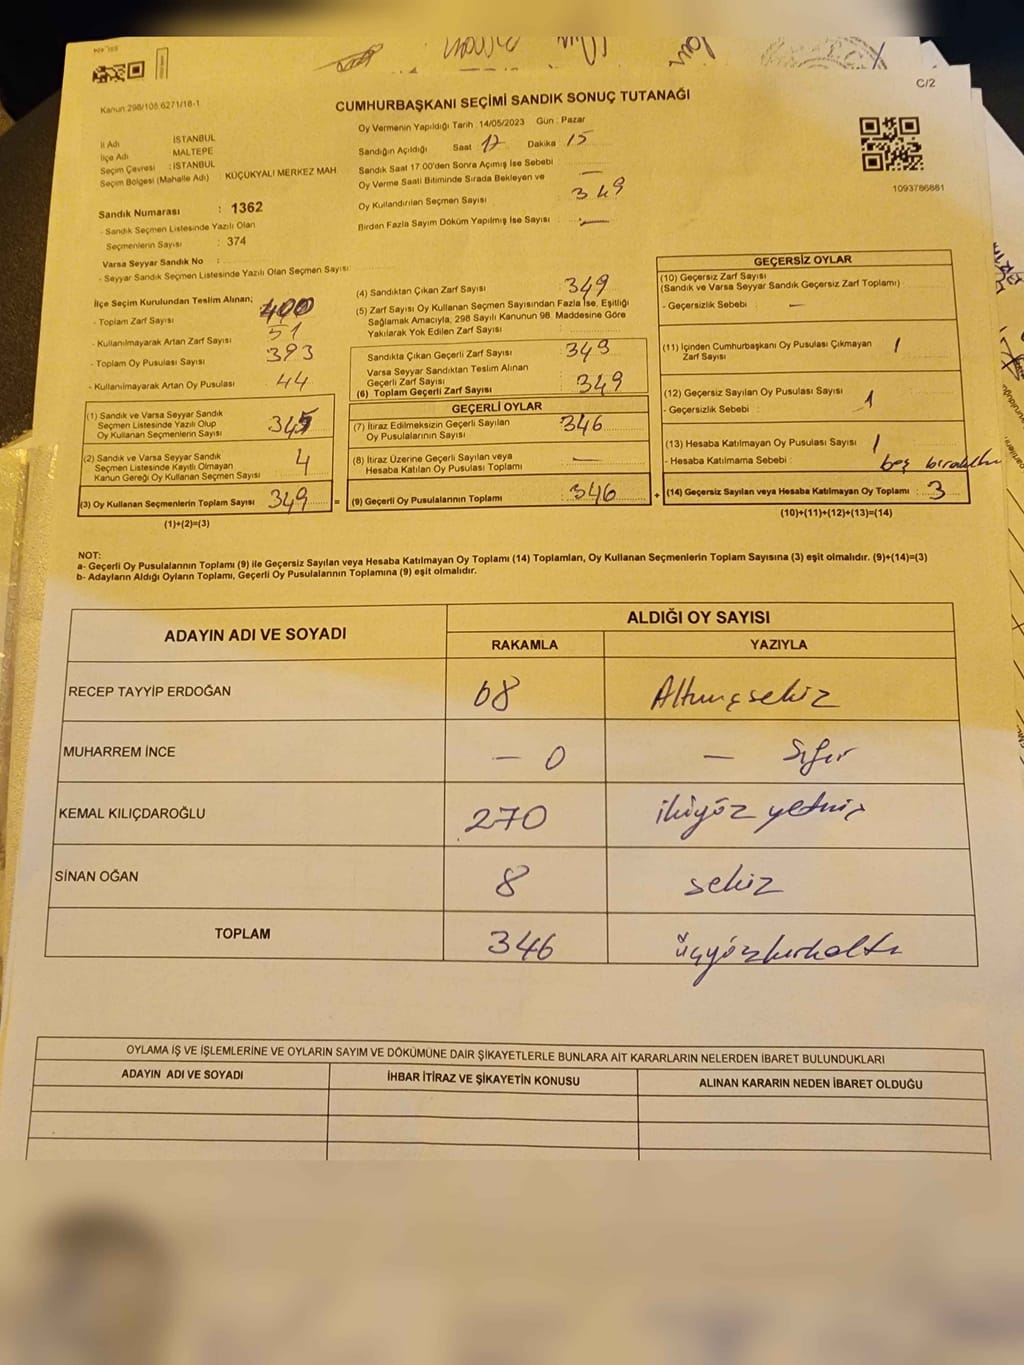 C/2
Kanun:298/105.6271/18-1
CUMHURBAŞKANI SEÇİMİ SANDIK SONUÇ TUTANAĞI
1093786861
İl Adı İSTANBUL
İlçe Adı MALTEPE
Seçim Çevresi : İSTANBUL
Seçim Bölgesi (Mahalle Adı) : KÜÇÜKYALI MERKEZ MAH
Sandık Numarası : 1362
- Sandık Seçmen Listesinde Yazılı Olan
Seçmenlerin Sayısı : 374
Varsa Seyyar Sandık No :
- Seyyar Sandık Seçmen Listesinde Yazılı Olan Seçmen Sayısı
Oy Vermenin Yapıldığı Tarih 14/05/2023 Gün : Pazar
Sandığın Açıldığı Saat 17 Dakika 15
Sandık Saat 17:00'den Sonra Açımış İse Sebebi : —
Oy Verme Saati Bitiminde Sırada Bekleyen ve
Oy Kullandırılan Seçmen Sayısı : 349
Birden Fazla Sayım Döküm Yapılmış İse Sayısı : —
İlçe Seçim Kurulundan Teslim Alınan;
- Toplam Zarf Sayısı 400
- Kullanılmayarak Artan Zarf Sayısı 51
- Toplam Oy Pusulası Sayısı 393
- Kullanılmayarak Artan Oy Pusulası 44
(1) Sandık ve Varsa Seyyar Sandık
Seçmen Listesinde Yazılı Olup
Oy Kullanan Seçmenlerin Sayısı 345
(2) Sandık ve Varsa Seyyar Sandık
Seçmen Listesinde Kayıtlı Olmayan
Kanun Gereği Oy Kullanan Seçmen Sayısı 4
(3) Oy Kullanan Seçmenlerin Toplam Sayısı 349 =
(1)+(2)=(3)
(4) Sandıktan Çıkan Zarf Sayısı : 349
(5) Zarf Sayısı Oy Kullanan Seçmen Sayısından Fazla İse, Eşitliği
Sağlamak Amacıyla, 298 Sayılı Kanunun 98. Maddesine Göre
Yakılarak Yok Edilen Zarf Sayısı :
Sandıkta Çıkan Geçerli Zarf Sayısı : 349
Varsa Seyyar Sandıktan Teslim Alınan
Geçerli Zarf Sayısı
(6) Toplam Geçerli Zarf Sayısı : 349
GEÇERLİ OYLAR
(7) İtiraz Edilmeksizin Geçerli Sayılan
Oy Pusulalarının Sayısı : 346
(8) İtiraz Üzerine Geçerli Sayılan veya
Hesaba Katılan Oy Pusulası Toplamı : —
(9) Geçerli Oy Pusulalarının Toplamı : 346 +
GEÇERSİZ OYLAR
(10) Geçersiz Zarf Sayısı
(Sandık ve Varsa Seyyar Sandık Geçersiz Zarf Toplamı) :
- Geçersizlik Sebebi : —
(11) İçinden Cumhurbaşkanı Oy Pusulası Çıkmayan
Zarf Sayısı : 1
(12) Geçersiz Sayılan Oy Pusulası Sayısı : 1
- Geçersizlik Sebebi :
(13) Hesaba Katılmayan Oy Pusulası Sayısı : 1
- Hesaba Katılmama Sebebi : boş
(14) Geçersiz Sayılan veya Hesaba Katılmayan Oy Toplamı : 3
(10)+(11)+(12)+(13)=(14)
NOT:
a- Geçerli Oy Pusulalarının Toplamı (9) ile Geçersiz Sayılan veya Hesaba Katılmayan Oy Toplamı (14) Toplamları, Oy Kullanan Seçmenlerin Toplam Sayısına (3) eşit olmalıdır. (9)+(14)=(3)
b- Adayların Aldığı Oyların Toplamı, Geçerli Oy Pusulalarının Toplamına (9) eşit olmalıdır.
ADAYIN ADI VE SOYADI ALDIĞI OY SAYISI
RAKAMLA YAZIYLA
RECEP TAYYİP ERDOĞAN 68 Altmışsekiz
MUHARREM İNCE — 0 — Sıfır
KEMAL KILIÇDAROĞLU 270 ikiyüz yetmiş
SİNAN OĞAN 8 sekiz
TOPLAM 346 üçyüzkırkaltı
OYLAMA İŞ VE İŞLEMLERİNE VE OYLARIN SAYIM VE DÖKÜMÜNE DAİR ŞİKAYETLERLE BUNLARA AİT KARARLARIN NELERDEN İBARET BULUNDUKLARI
ADAYIN ADI VE SOYADI İHBAR İTİRAZ VE ŞİKAYETİN KONUSU ALINAN KARARIN NEDEN İBARET OLDUĞU